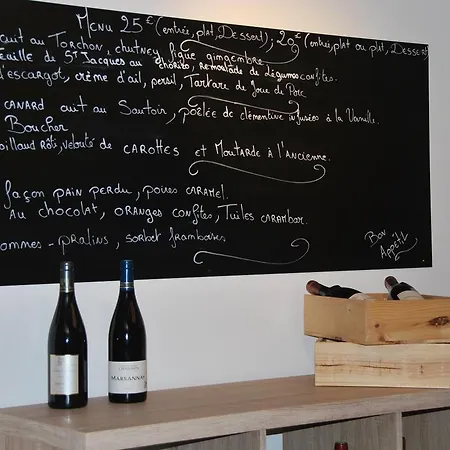 Menu 25€ (entrée, plat, Dessert) ; 20€ (entrée, plat ou plat, Dessert)
cuit au Torchon, chutney figue gingembre
feuille de St Jacques au chorizo, remoulade de légumes confites.
d'escargot, crème d'ail, persil, Tartare de Joue de Porc
CANARD cuit au Sautoir, poêlée de clémentine infusées à la Vanille
Boucher
aillaud Rôti, velouté de CAROTTES et Moutarde à l'Ancienne.
façon PAIN PERDU, poires CARAMEL.
Au chocolat, ORANGES confites, Tuiles CARAMBAR.
ommes - pralins, sorbet framboises
Bon
Appétit
MARSANNAY